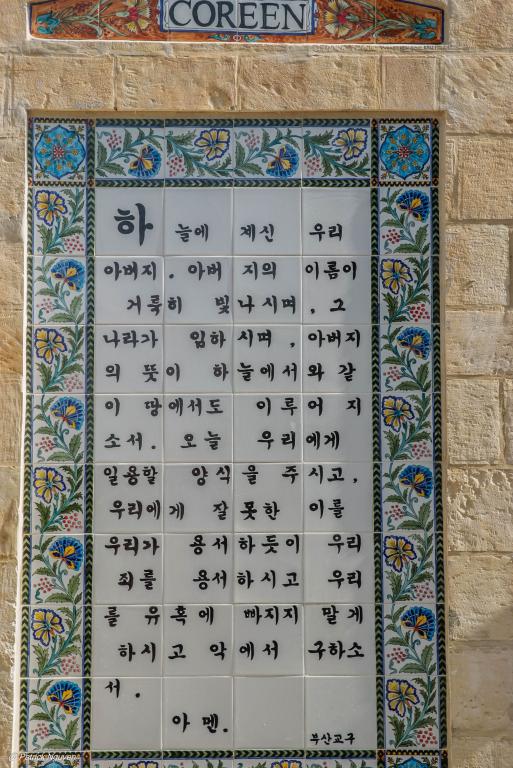 COREEN
하늘에 계신 우리
아버지. 아버지의 이름이
거룩히 빛나시며, 그
나라가 임하시며, 아버지
의 뜻이 하늘에서와 같
이 땅에서도 이루어지
소서. 오늘 우리에게
일용할 양식을 주시고,
우리에게 잘못한 이를
우리가 용서하듯이 우리
죄를 용서하시고 우리
를 유혹에 빠지지 말게
하시고 악에서 구하소
서.
아멘.
부산교구
© Patrick Nguyen